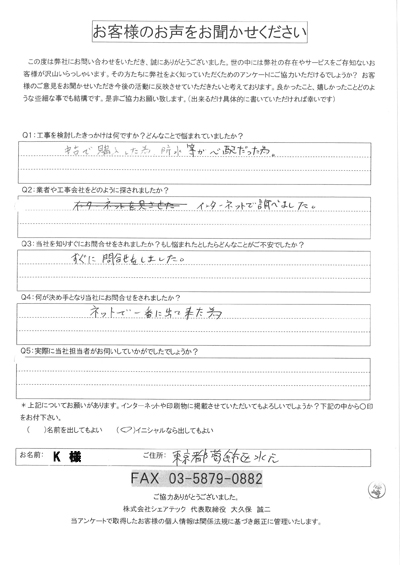 お客様のお声をお聞かせください
この度は弊社にお問い合わせをいただき、誠にありがとうございます。世の中には弊社の存在やサービスをご存知ないお
客様が沢山いらっしゃいます。その方たちに弊社をよく知っていただくためのアンケートにご協力いただけるでしょうか？ お客
様のご意見をお聞かせいただき今後の活動に反映させていただきたいと考えております。良かったこと、嬉しかったことどのよ
うな些細な事でも結構です。是非ご協力お願い致します。（出来るだけ具体的に書いていただければ幸いです）
Q1:工事を検討したきっかけは何ですか？どんなことで悩まれていましたか？
中古で購入した為 防水等が心配だった為。
Q2:業者や工事会社をどのように探されましたか？
インターネットで調べました。
Q3:当社を知りすぐにお問合せをされましたか？もし悩まれたとしたらどんなことがご不安でしたか？
すぐに問合せをしました。
Q4:何が決め手となり当社にお問合せをされましたか？
ネットで一番に出て来た為
Q5:実際に当社担当者がお伺いしていかがでしたでしょうか？
＊上記についてお願いがあります。インターネットや印刷物に掲載させていただいてもよろしいでしょうか？下記の中から〇印
をお付下さい。
（　）名前を出してもよい （〇）イニシャルなら出してもよい
お名前: K 様 ご住所: 東京都葛飾区水元
FAX 03-5879-0882
ご協力ありがとうございました。
株式会社シェアテック 代表取締役 大久保 誠二
当アンケートで取得したお客様の個人情報は関係法規に基づき厳正に管理いたします。